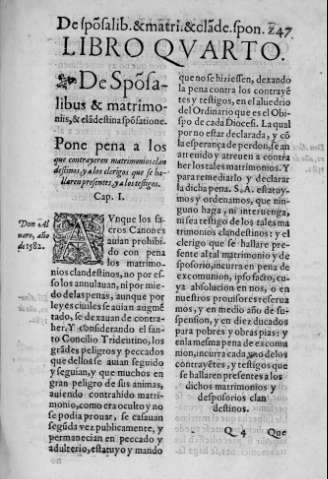 De spõsalib. & matri. & clãde. spon. 247
LIBRO QVARTO.
De Spõsa-
libus & matrimo-
niis, & clãdestina spõsatione.
Pone pena a los
que contrayeren matrimonios clan
destinos, y a los clerigos que se ha-
llaren presentes, y a los testigos.
Cap. I.
Don Al
naro, año
de 1582.
AVnque los sa-
cros Canones
auian prohibi-
do con pena
los matrimo-
nios clandestinos, no por es-
so los annulauan, ni por mie-
do de las penas, aunque por
leyes ciuiles se auian augmē
tado, se dexauan de contra-
her. Y considerando el san-
to Concilio Tridentino, los
grãdes peligros y peccados
que dellos se auian seguido
y seguian, y que muchos en
gran peligro de sus animas,
auiendo contrahido matri-
monio, como era oculto y no
se podia prouar, se casauan
segũda vez publicamente, y
permanecian en peccado y
adulterio, estatuyo y mando
que no se hiziessen, dexando
la pena contra los contrayē-
tes y testigos, en el aluedrio
del Ordinario que es el Obis-
po de cada Diocesi. La qual
por no estar declarada, y cõ
la esperança de perdon, se an
atreuido y atreuen a contra
her los tales matrimonios. Y
para remediarlo y declarar
la dicha pena. S. A. estatuy-
mos y ordenamos, que nin-
guno haga, ni interuenga,
ni sea testigo de los tales ma
trimonios clandestinos: y el
clerigo que se hallare prese-
nte al tal matrimonio y de
sposorio, incurra en pena de
excomunion, ipso facto, cu-
ya absolucion en nos, o en
nuestros prouisores reserua-
mos, y en medio año de sus-
pension, y en diez ducados
para pobres y obras pias: y
en la mesma pena de excomu
nion, incurra cada vno de los
contrayētes, y testigos que
se hallaren presentes a los
dichos matrimonios y
desposorios clan
destinos.
Q 4 Que